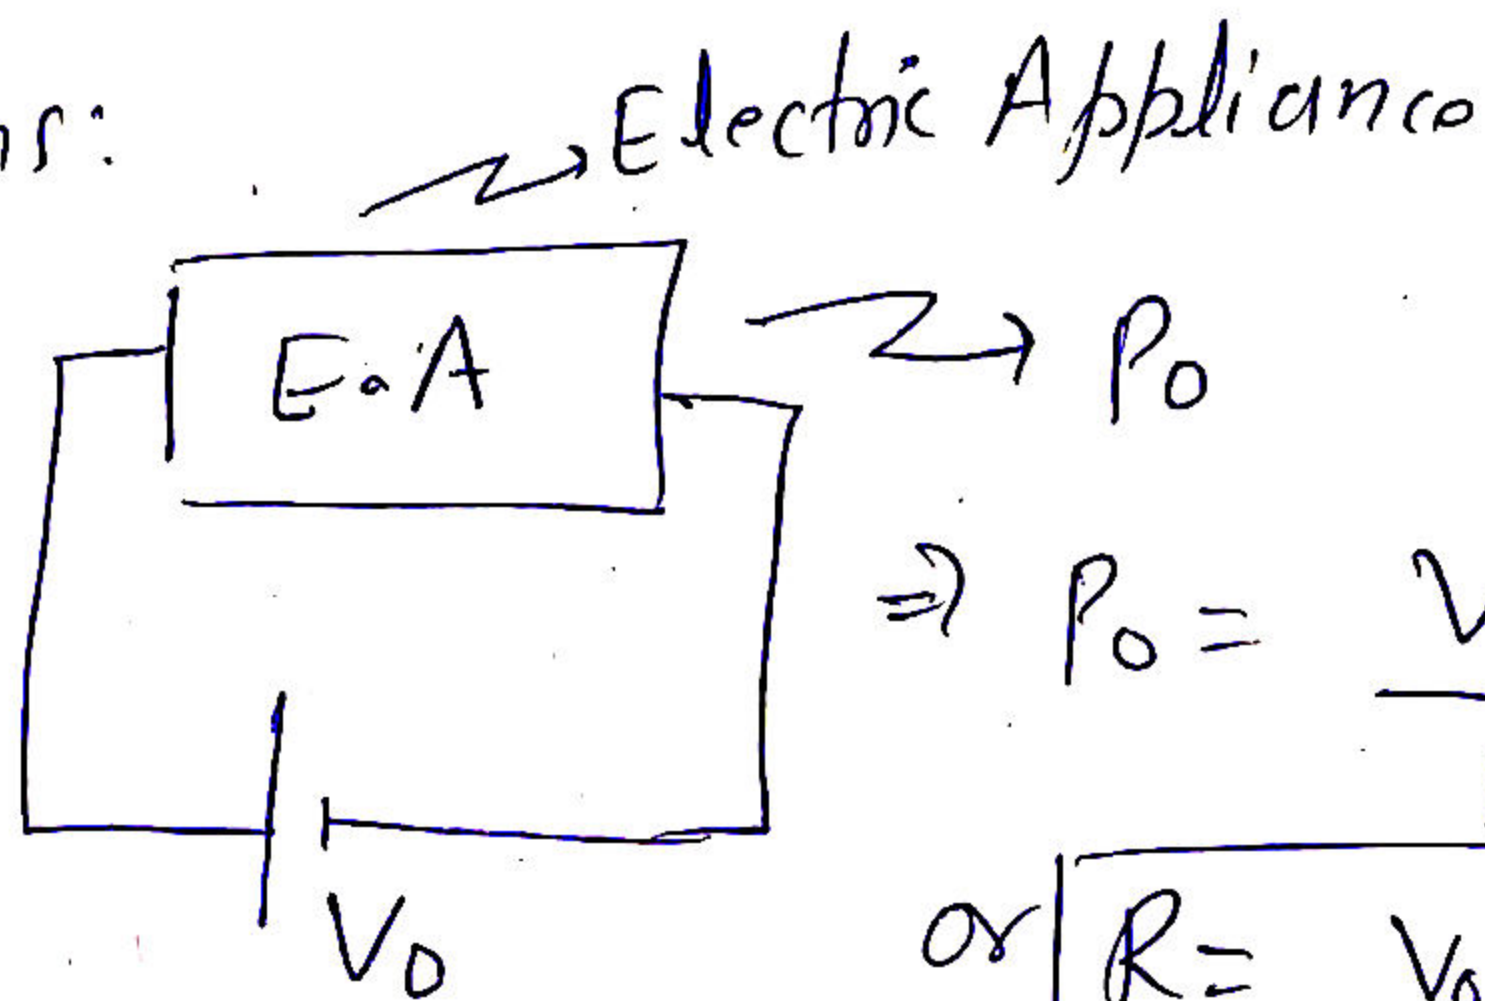 ns:
Electric Appliance
E.A
P₀
⇒ P₀ = V
V₀
or R = V₀